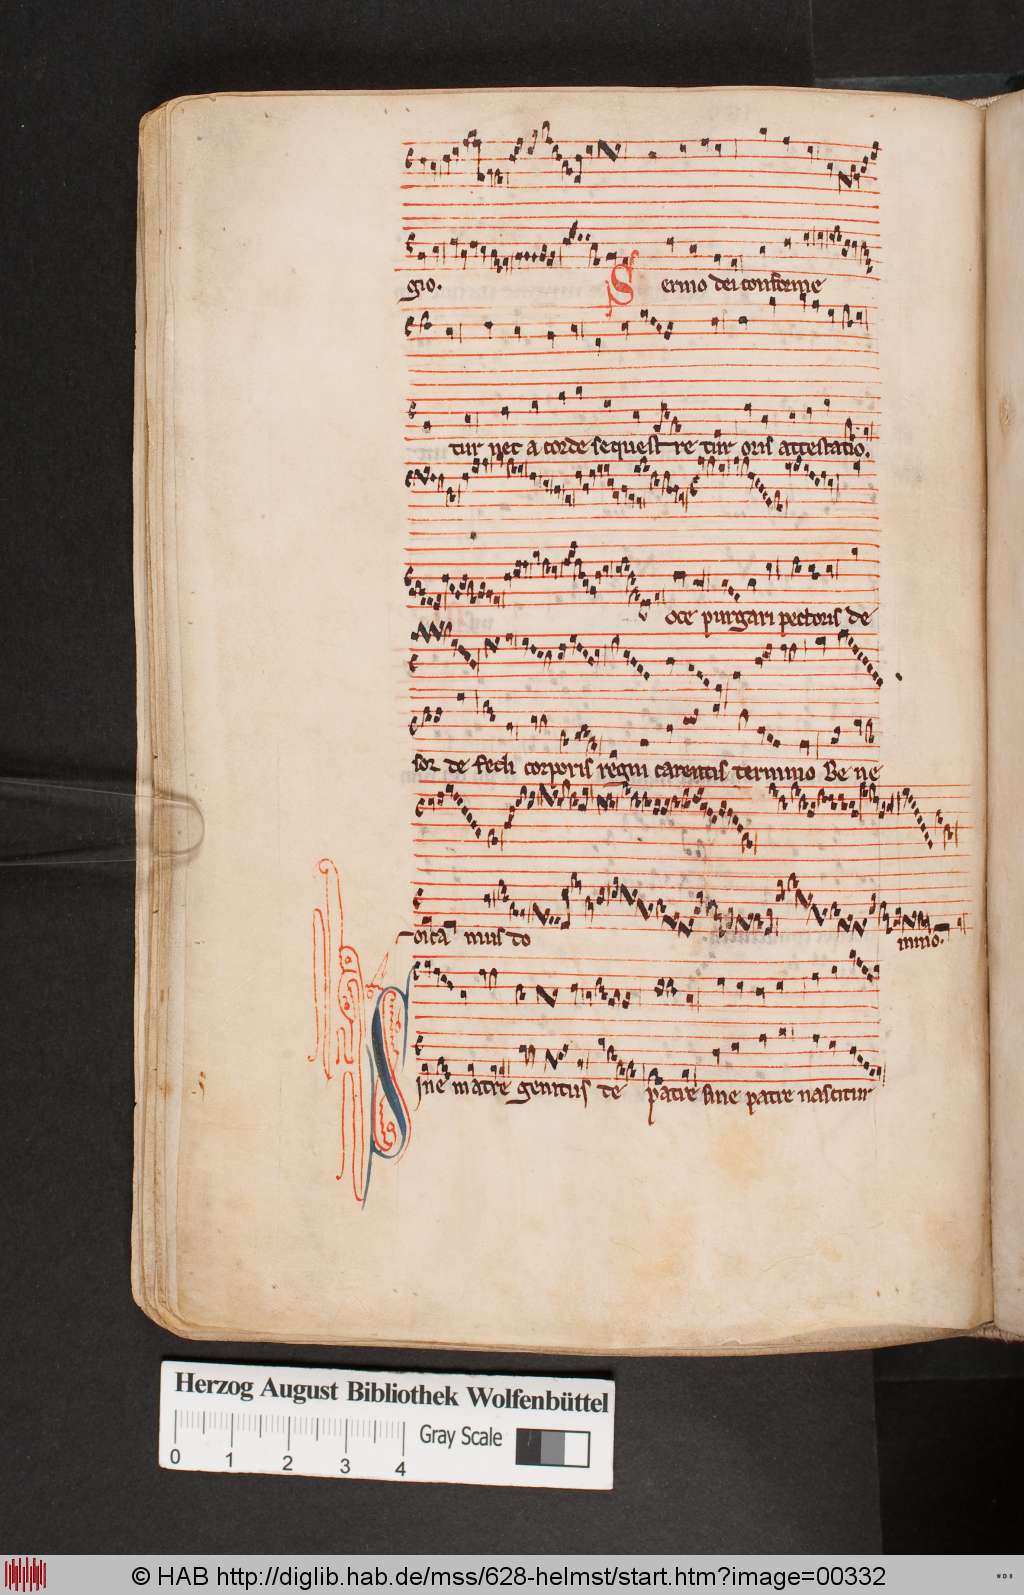 gio. Sermo dei conferme
tur nec a corde sequest re tur oris attestatio.
oce purgari pectoris de
sor de secli corporis regni carentis termino Be ne
mus do mino.
Sine matre genitus de patre sine patre nascitur
Herzog August Bibliothek Wolfenbüttel
Gray Scale
0 1 2 3 4
© HAB http://diglib.hab.de/mss/628-helmst/start.htm?image=00332